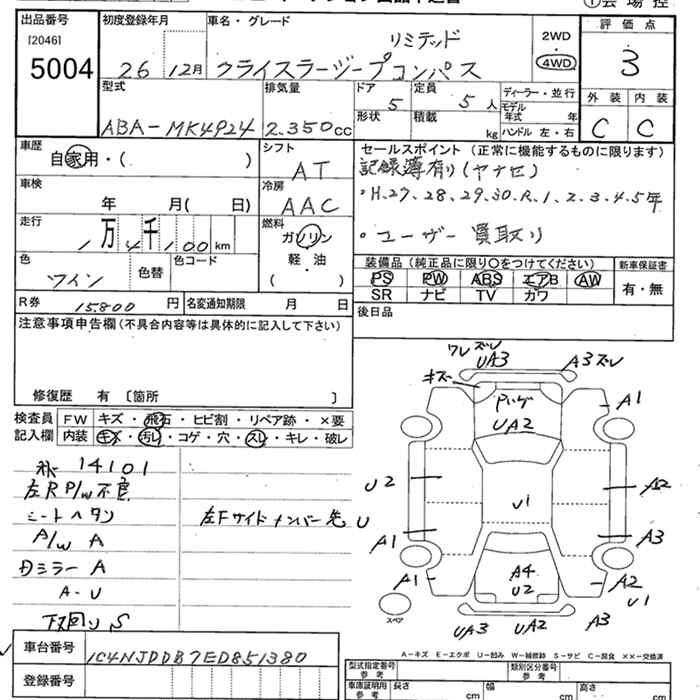 出品番号
[2046]
5004
初度登録年月
26 12月
車名・グレード
リミテッド
クライスラージープコンパス
2WD
・
4WD
評価点
3
型式
ABA-MK4924
排気量
2.350cc
ドア
5
定員
5人
形状
積載
kg
ディーラー・並行
モデル
年式 年
ハンドル 左・右
外装 内装
C C
車歴
自家用・( )
シフト
AT
セールスポイント（正常に機能するものに限ります）
記録簿有り(ヤナセ)
・H.27.28.29.30.R.1.2.3.4.5年
・ユーザー買取り
車検
年 月( 日)
冷房
AAC
走行
1万4千100km
燃料
ガソリン
軽・油
( )
色
ワイン
色替
色コード
装備品（純正品に限り○をつけてください）
新車保証書
PS PW ABS エアB AW
有・無
SR ナビ TV カワ
R券 15.800円
名変通知期限 月 日
後日品
注意事項申告欄（不具合内容等は具体的に記入して下さい）
修復歴 有 〔箇所 〕
検査員 FW キズ・飛石・ヒビ割・リペア跡・×要
記入欄 内装 キズ・汚レ・コゲ・穴・スレ・キレ・破レ
14101
左R P/W不良
シートヘタン
左Fサイドメンバー先 U
A/W A
Dミラー A
A-U
下回りS
ワレ ズレ
UA3
A3 ズレ
キズ
UA2
A1
U2
U1
A2
A1
A3
A1
A4
U2
A2
U1
UA3
UA2
A3
スペア
A－キズ E－エクボ U－凹み W－補修跡 S－サビ C－腐食 ××－交換済
車台番号
1C4NJDDB7ED851380
登録番号
型式指定番号
参考
類別区分番号
参考
車庫証明用
参考
長さ cm
幅 cm
高さ cm